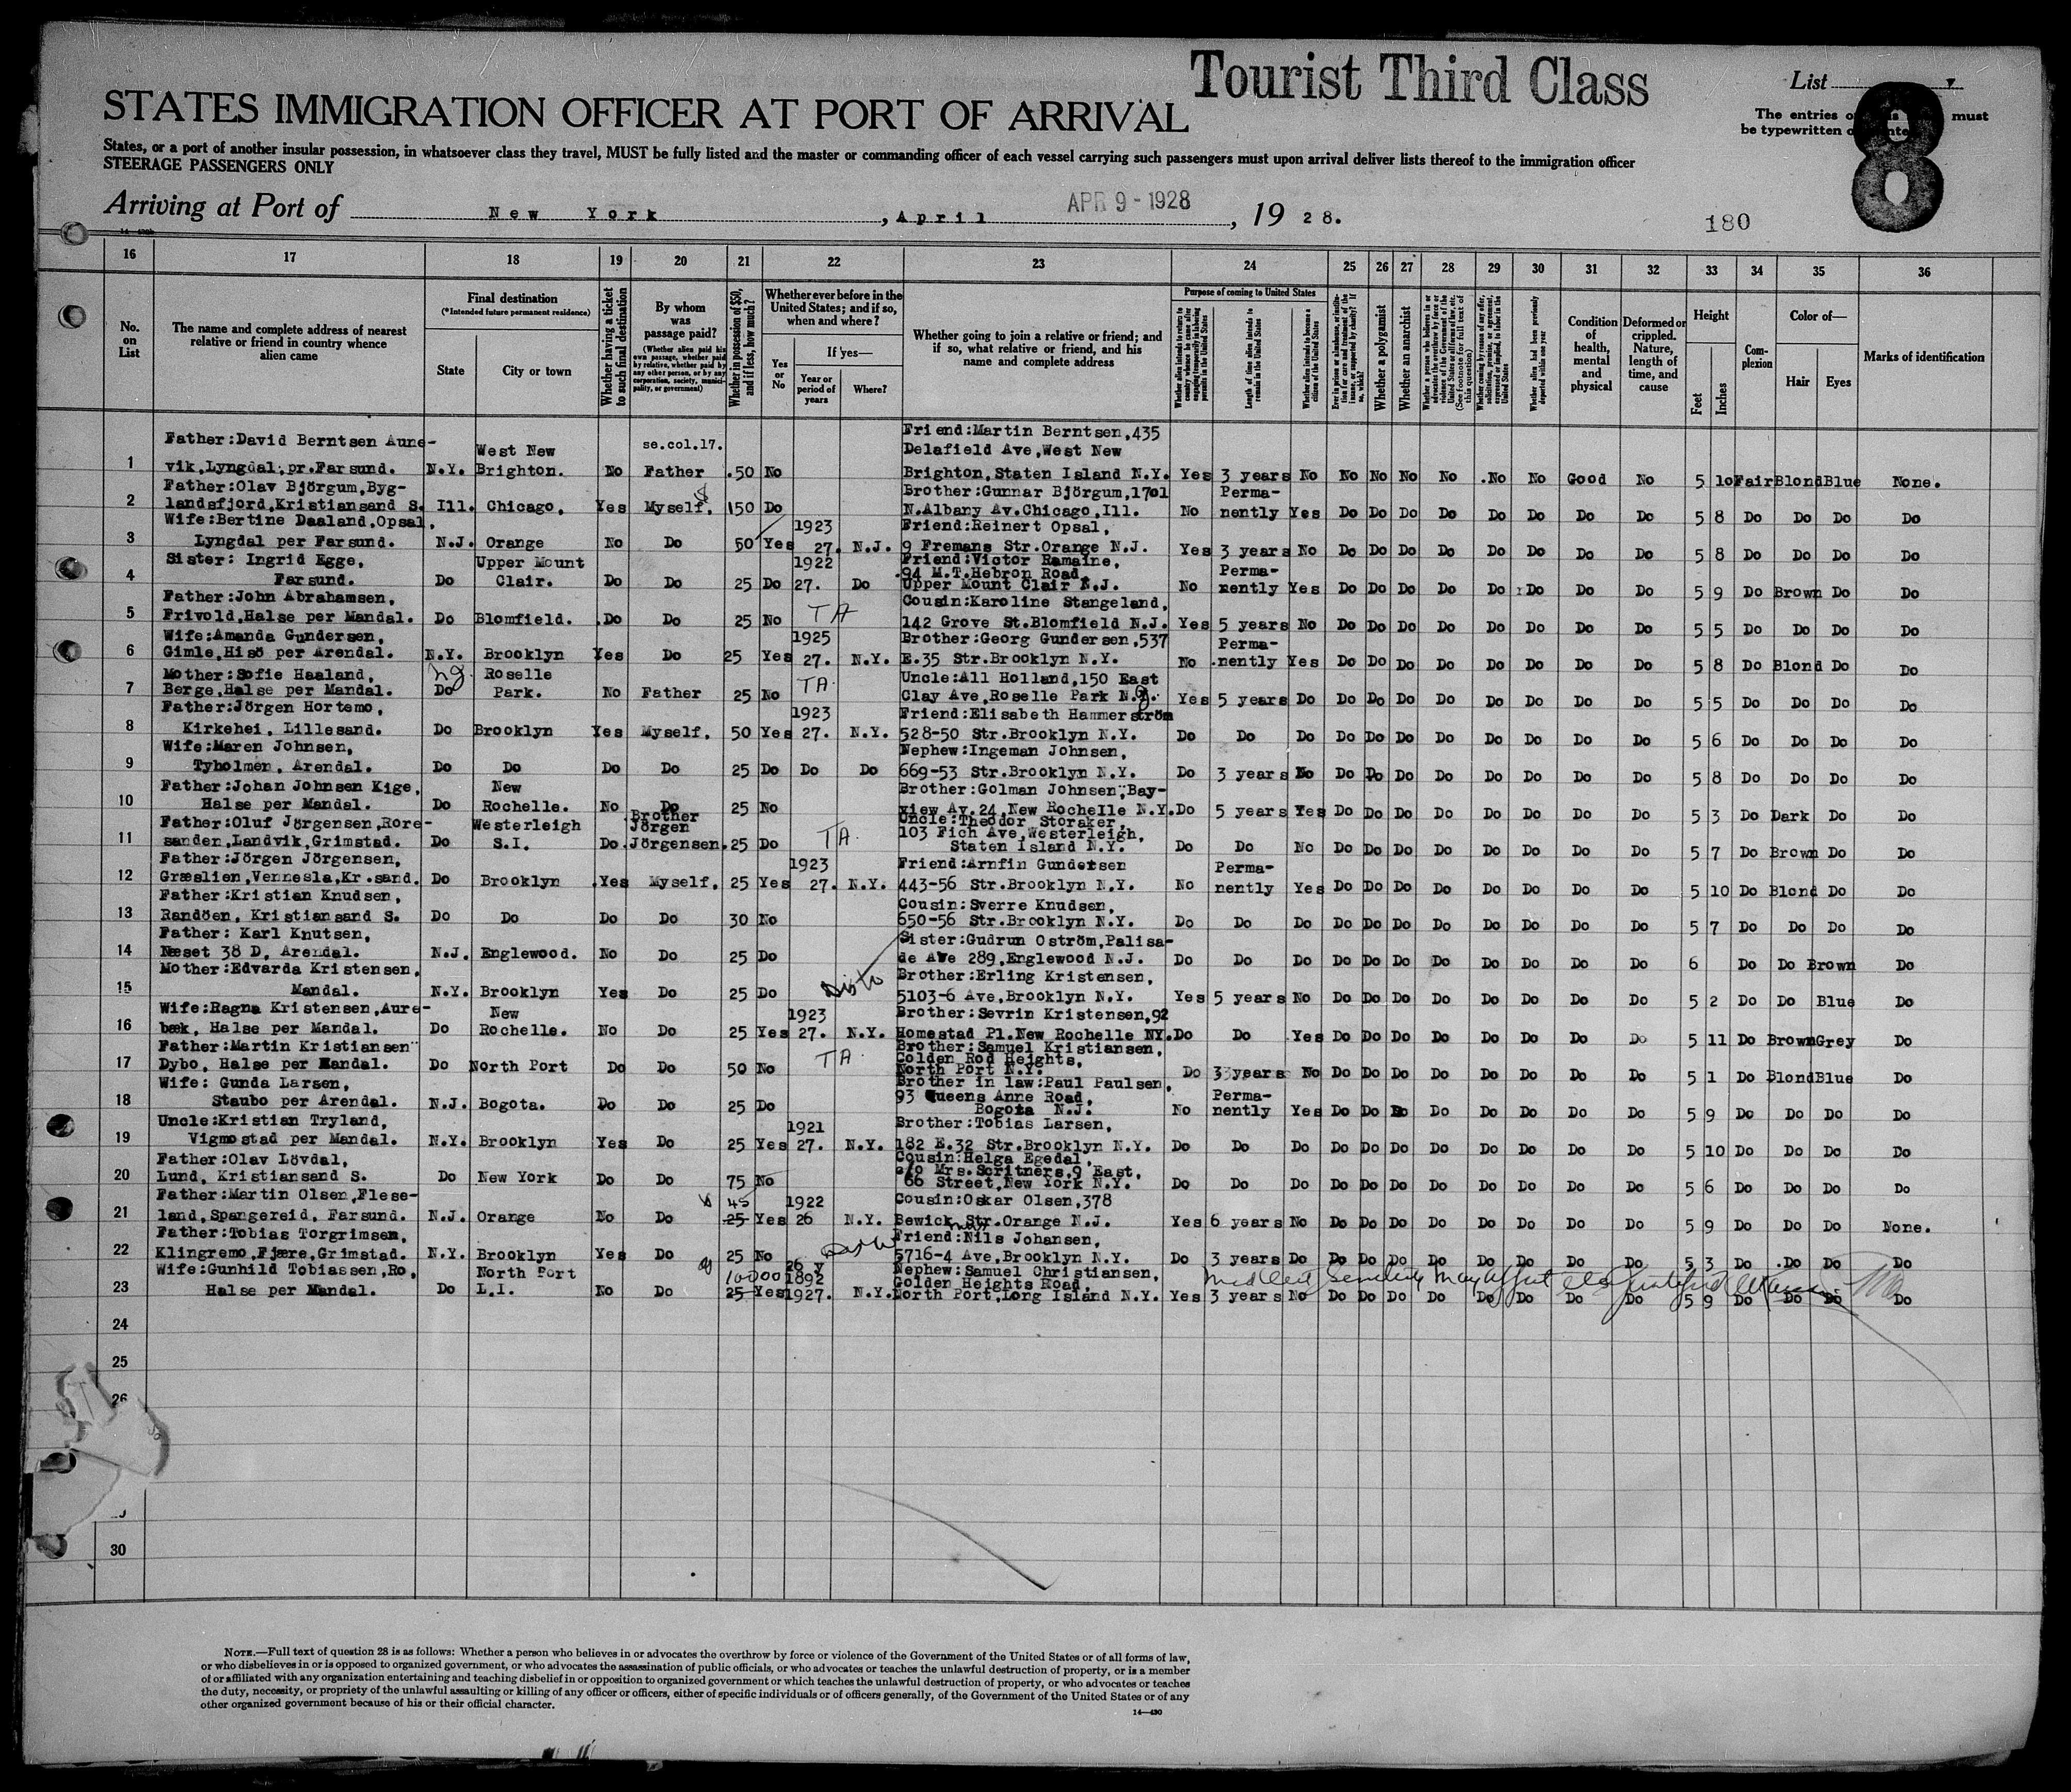 Tourist Third Class
List
8
STATES IMMIGRATION OFFICER AT PORT OF ARRIVAL
The entries must
be typewritten
States, or a port of another insular possession, in whatsoever class they travel, MUST be fully listed and the master or commanding officer of each vessel carrying such passengers must upon arrival deliver lists thereof to the immigration officer
STEERAGE PASSENGERS ONLY
Arriving at Port of New York, April APR 9 - 1928, 1928.
180
16 17 18 19 20 21 22 23 24 25 26 27 28 29 30 31 32 33 34 35 36
No. on List
The name and complete address of nearest relative or friend in country whence alien came
Final destination
(*Intended future permanent residence)
State
City or town
Whether having a ticket to such final destination
By whom was passage paid?
(Whether alien paid his own passage, whether paid by relative, whether paid by any other person, or by any corporation, society, municipality, or government)
Whether in possession of $50, and if less, how much?
Whether ever before in the United States; and if so, when and where?
Yes or No
If yes—
Year or period of years
Where?
Whether going to join a relative or friend; and if so, what relative or friend, and his name and complete address
Purpose of coming to United States
Whether a polygamist
Whether an anarchist
Condition of health, mental and physical
Deformed or crippled. Nature, length of time, and cause
Height
Feet
Inches
Complexion
Color of—
Hair
Eyes
Marks of identification
1 Father:David Berntsen Aune-
vik,Lyngdal.pr.Farsund. N.Y. West New Brighton. No se.col.17. Father .50 No Friend:Martin Berntsen,435
Delafield Ave,West New
Brighton,Staten Island N.Y. Yes 3 years No No No No No No No Good No 5 10 Fair Blond Blue None.
2 Father:Olav Björgum,Byg-
landsfjord,Kristiansand S. Ill. Chicago, Yes Myself, 150 Do Brother:Gunnar Björgum,1701
N.Albany Av.Chicago,Ill. No Permanently Yes Do Do Do Do Do Do Do Do 5 8 Do Do Do Do
3 Wife:Bertine Daaland,Opsal,
Lyngdal per Farsund. N.J. Orange No Do 50 Yes 1923 27. N.J. Friend:Reinert Opsal,
9 Fremans Str.Orange N.J. Yes 3 years No Do Do Do Do Do Do Do Do 5 8 Do Do Do Do
4 Sister: Ingrid Egge,
Farsund. Do Upper Mount Clair. Do Do 25 Do 1922 27. Do Friend:Victor Ramaine,
94 M.T.Hebron Road,
Upper Mount Clair N.J. No Permanently Yes Do Do Do Do Do Do Do Do 5 9 Do Brown Do Do
5 Father:John Abrahamsen,
Frivold,Halse per Mandal. Do Blomfield. Do Do 25 No TA Cousin:Karoline Stangeland,
142 Grove St.Blomfield N.J. Yes 5 years No Do Do Do Do Do Do Do Do 5 5 Do Do Do Do
6 Wife:Amanda Gundersen,
Gimle,Hisö per Arendal. N.Y. Brooklyn Yes Do 25 Yes 1925 27. N.Y. Brother:Georg Gundersen,537
E.35 Str.Brooklyn N.Y. No Permanently Yes Do Do Do Do Do Do Do Do 5 8 Do Blond Do Do
7 Mother:Sofie Haaland,
Berge,Halse per Mandal. Do Roselle Park. No Father 25 No TA Uncle:All Holland,150 East
Clay Ave,Roselle Park N.J. Yes 5 years Do Do Do Do Do Do Do Do Do 5 5 Do Do Do Do
8 Father:Jörgen Hortemo,
Kirkehei, Lillesand. Do Brooklyn Yes Myself. 50 Yes 1923 27. N.Y. Friend:Elisabeth Hammerström
528-50 Str.Brooklyn N.Y. Do Do Do Do Do Do Do Do Do Do Do 5 6 Do Do Do Do
9 Wife:Maren Johnsen,
Tyholmen, Arendal. Do Do Do Do 25 Do Do Do Nephew:Ingeman Johnsen,
669-53 Str.Brooklyn N.Y. Do 3 years No Do Do Do Do Do Do Do Do 5 8 Do Do Do Do
10 Father:Johan Johnsen Kige,
Halse per Mandal. Do New Rochelle. No Do 25 No Brother:Golman Johnsen,Bay-
view Av.24,New Rochelle N.Y. Do 5 years Yes Do Do Do Do Do Do Do Do 5 3 Do Dark Do Do
11 Father:Oluf Jörgensen,Rore-
sanden,Landvik,Grimstad. Do Westerleigh S.I. Do Brother Jörgen Jörgensen. 25 Do TA Uncle:Theodor Storaker,
103 Fich Ave,Westerleigh,
Staten Island N.Y. Do Do No Do Do Do Do Do Do Do Do 5 7 Do Brown Do Do
12 Father:Jörgen Jörgensen,
Græslien,Vennesla,Kr.sand. Do Brooklyn Yes Myself. 25 Yes 1923 27. N.Y. Friend:Arnfin Gundersen
443-56 Str.Brooklyn N.Y. No Permanently Yes Do Do Do Do Do Do Do Do 5 10 Do Blond Do Do
13 Father:Kristian Knudsen,
Randöen, Kristiansand S. Do Do Do Do 30 No Cousin:Sverre Knudsen,
650-56 Str.Brooklyn N.Y. Do Do Do Do Do Do Do Do Do Do Do 5 7 Do Do Do Do
14 Father: Karl Knutsen,
Næset 38 D, Arendal. N.J. Englewood. No Do 25 Do Sister:Gudrun Oström,Palisa-
de Ave 289,Englewood N.J. Do Do Do Do Do Do Do Do Do Do Do 6 Do Do Brown Do
15 Mother:Edvarda Kristensen,
Mandal. N.Y. Brooklyn Yes Do 25 Do Brother:Erling Kristensen,
5103-6 Ave,Brooklyn N.Y. Yes 5 years No Do Do Do Do Do Do Do Do 5 2 Do Do Blue Do
16 Wife:Ragna Kristensen,Aure-
bæk, Halse per Mandal. Do New Rochelle. No Do 25 Yes 1923 27. N.Y. Brother:Sevrin Kristensen,92
Homestad Pl.New Rochelle NY. Do Do Yes Do Do Do Do Do Do Do Do 5 11 Do Brown Grey Do
17 Father:Martin Kristiansen
Dybo, Halse per Mandal. Do North Port Do Do 50 No TA Brother:Samuel Kristiansen,
Golden Rod Heights,
North Port N.Y. Do 3 years No Do Do Do Do Do Do Do Do 5 1 Do Blond Blue Do
18 Wife: Gunda Larsen,
Staubo per Arendal. N.J. Bogota. Do Do 25 Do Brother in law:Paul Paulsen,
93 Queens Anne Road,
Bogota N.J. No Permanently Yes Do Do Do Do Do Do Do Do 5 9 Do Do Do Do
19 Uncle:Kristian Tryland,
Vigmostad per Mandal. N.Y. Brooklyn Yes Do 25 Yes 1921 27. N.Y. Brother:Tobias Larsen,
182 E.32 Str.Brooklyn N.Y. Do Do Do Do Do Do Do Do Do Do Do 5 10 Do Do Do Do
20 Father:Olav Lövdal,
Lund, Kristiansand S. Do New York Do Do 75 No Cousin:Helga Egedal,
c/o Mrs.Scritners,9 East,
66 Street,New York N.Y. Do Do Do Do Do Do Do Do Do Do Do 5 6 Do Do Do Do
21 Father:Martin Olsen,Flese-
land,Spangereid, Farsund. N.J. Orange No Do 45 25 Yes 1922 26 N.Y. Cousin:Oskar Olsen,378
Bewick Str.Orange N.J. Yes 6 years No Do Do Do Do Do Do Do Do 5 9 Do Do Do None.
22 Father:Tobias Torgrimsen,
Klingremo,Fjære,Grimstad. N.Y. Brooklyn Yes Do 25 No Friend:Nils Johansen,
5716-4 Ave,Brooklyn N.Y. Do 3 years Do Do Do Do Do Do Do Do Do 5 3 Do Do Do Do
23 Wife:Gunhild Tobiassen,Ro,
Halse per Mandal. Do North Port L.I. No Do 10000 25 Yes 26 y 1892 1927. N.Y. Nephew:Samuel Christiansen,
Golden Heights Road,
North Port,Long Island N.Y. Yes 3 years No Do Do Do Do Do Do Do Do 5 9 Do Do Do Do
24
25
26
30
NOTE.—Full text of question 28 is as follows: Whether a person who believes in or advocates the overthrow by force or violence of the Government of the United States or of all forms of law,
or who disbelieves in or is opposed to organized government, or who advocates the assassination of public officials, or who advocates or teaches the unlawful destruction of property, or is a member
of or affiliated with any organization entertaining and teaching disbelief in or opposition to organized government or which teaches the unlawful destruction of property, or who advocates or teaches
the duty, necessity, or propriety of the unlawful assaulting or killing of any officer or officers, either of specific individuals or of officers generally, of the Government of the United States or of any
other organized government because of his or their official character.
14—430